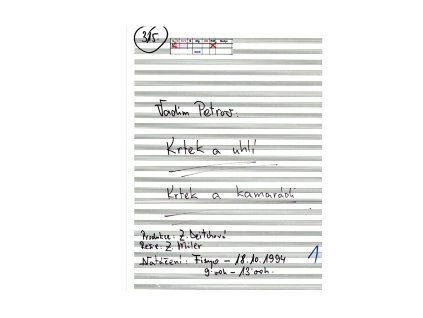 315.
Vadim Petrov:
Krtek a uhlí
Krtek a kamarádi
Produkce: Z. Deitchová
Režie: Z. Miler
Natáčení: Fisyo – 18.10.1994
9:00h – 13:00h.
1